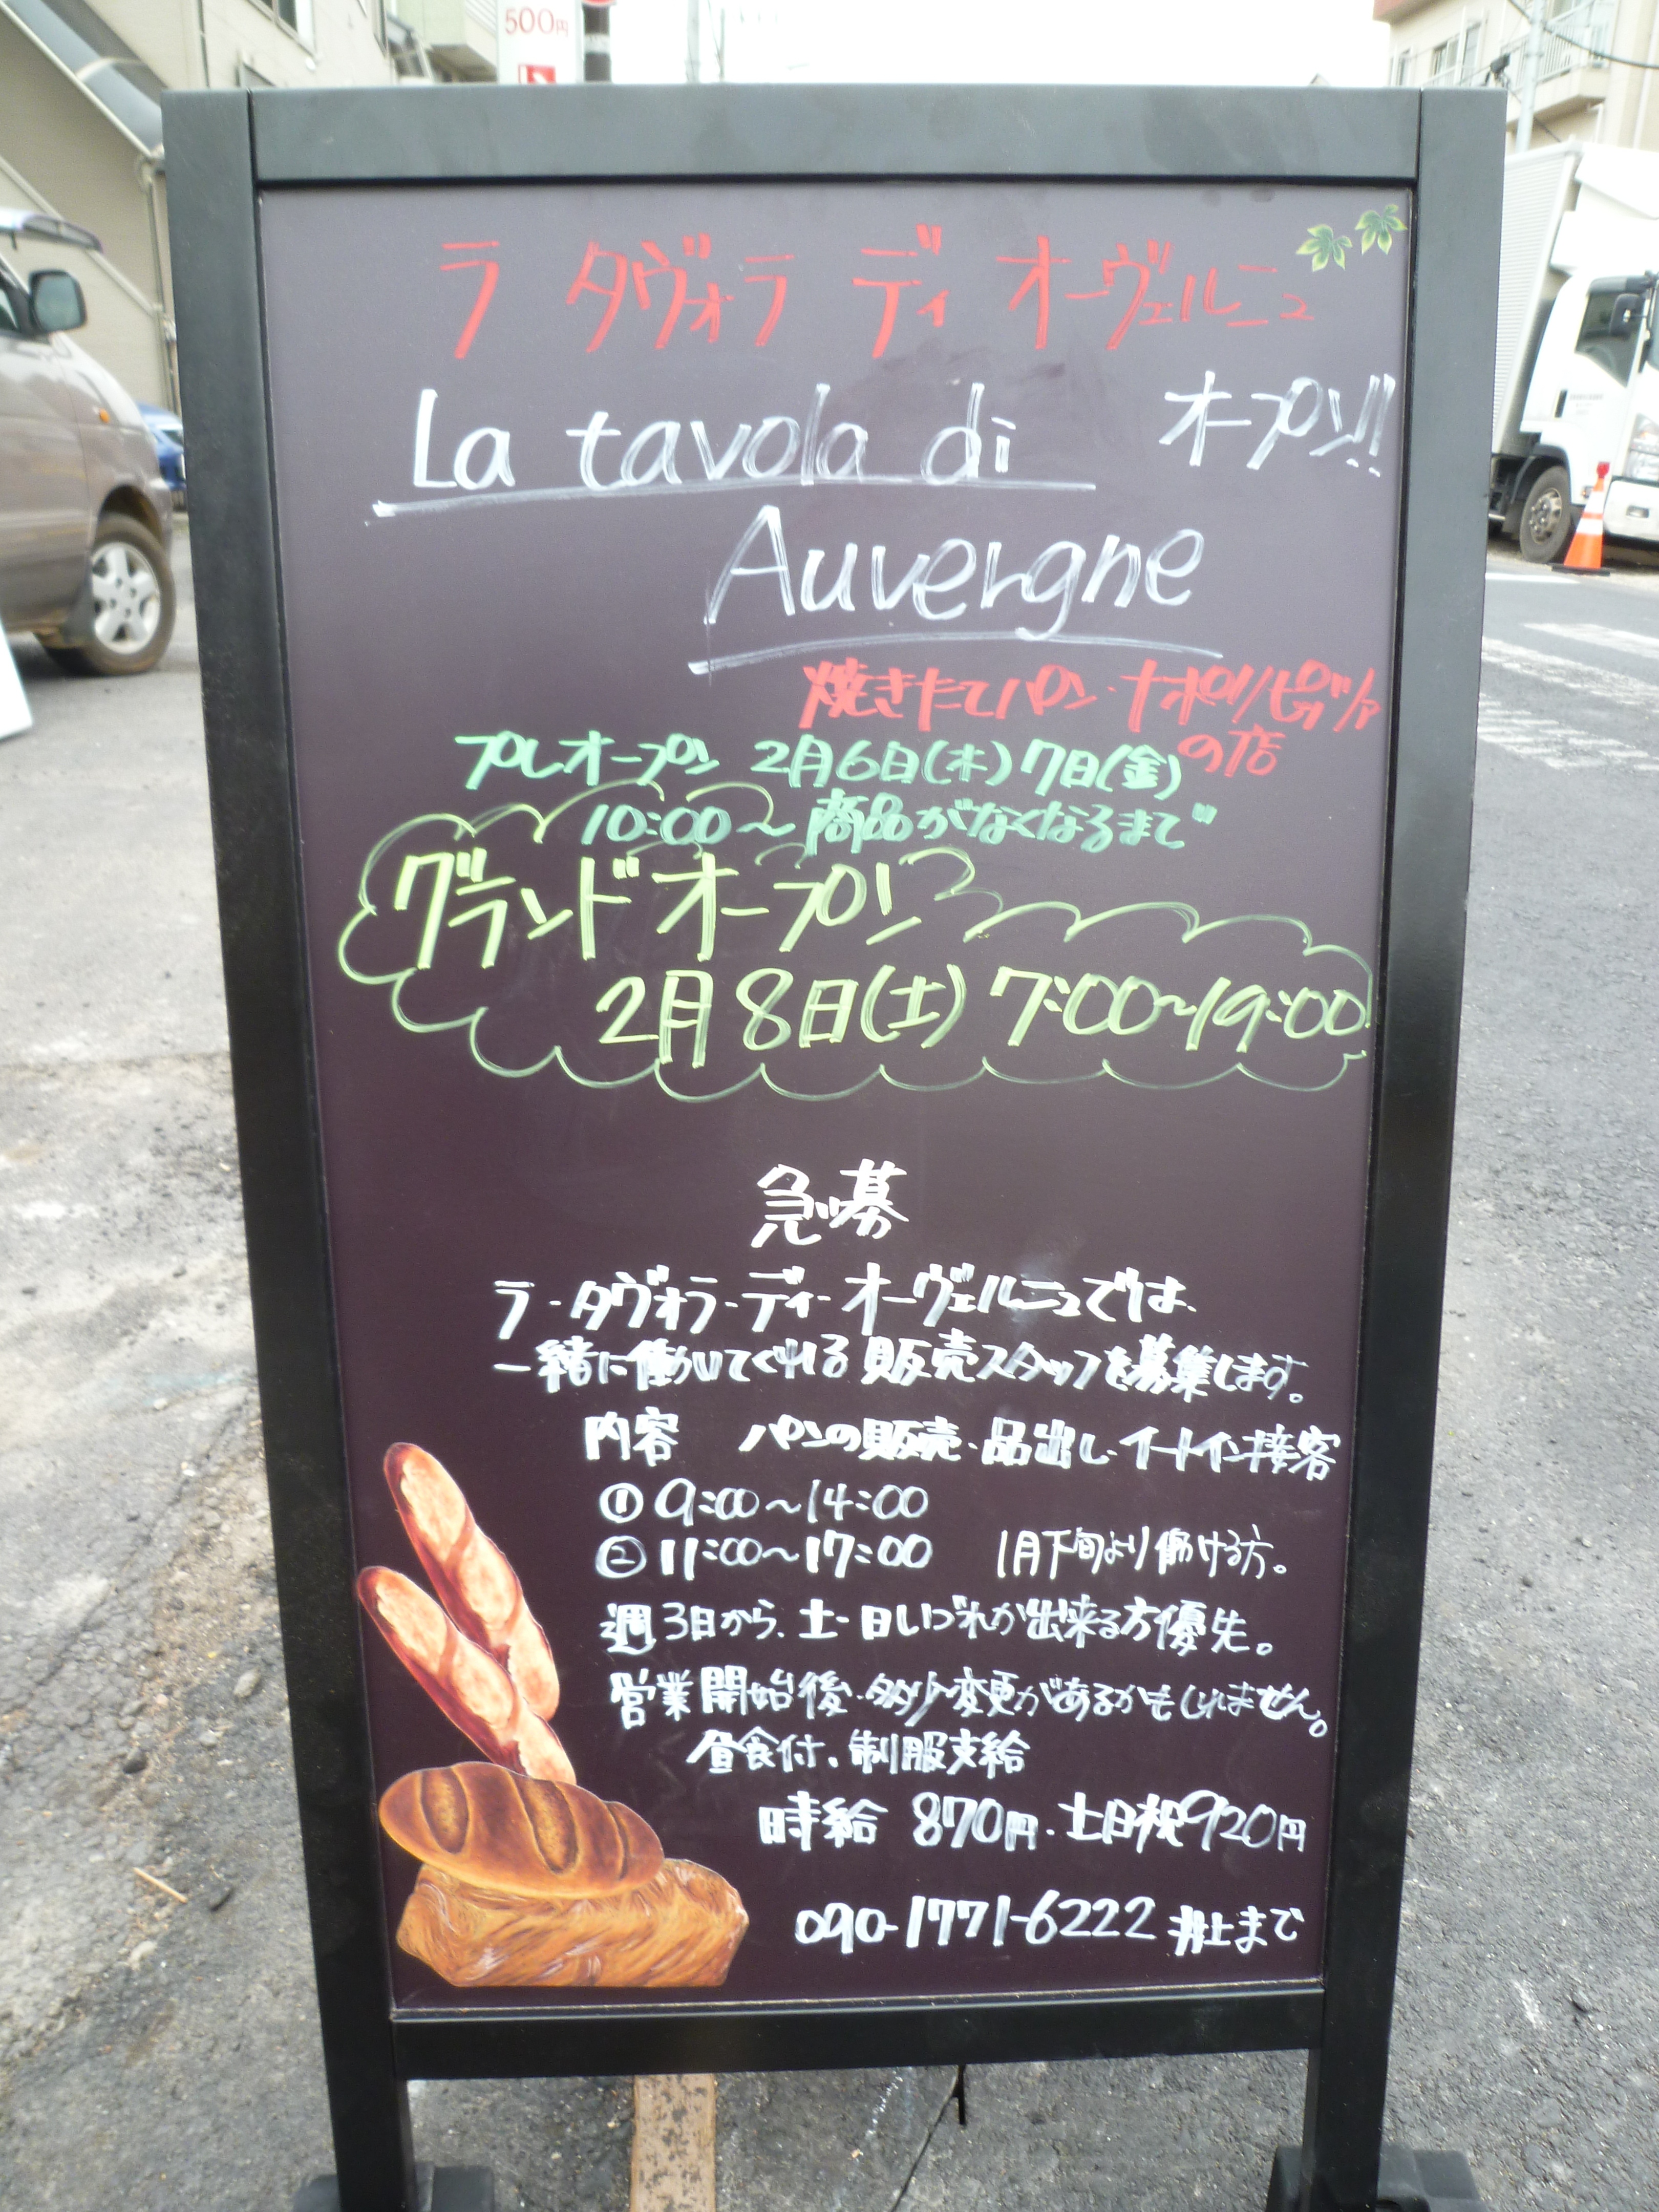 500円
ラ タヴォラ ディ オーヴェルニュ
La tavola di オープン!!
Auvergne
焼きたてパン・ナポリピッツァ
の店
プレオープン 2月6日(木)7日(金)
10:00〜商品がなくなるまで
グランドオープン
2月8日(土) 7:00〜19:00
急募
ラ・タヴォラ・ディ・オーヴェルニュでは、
一緒に働いてくれる販売スタッフを募集します。
内容 パンの販売・品出し・イートイン接客
① 9:00〜14:00
② 11:00〜17:00 1月下旬より働ける方。
週3日から、土・日いづれか出来る方優先。
営業開始後・多少変更があるかもしれません。
昼食付、制服支給
時給 870円・土日祝920円
090-1771-6222 井上まで